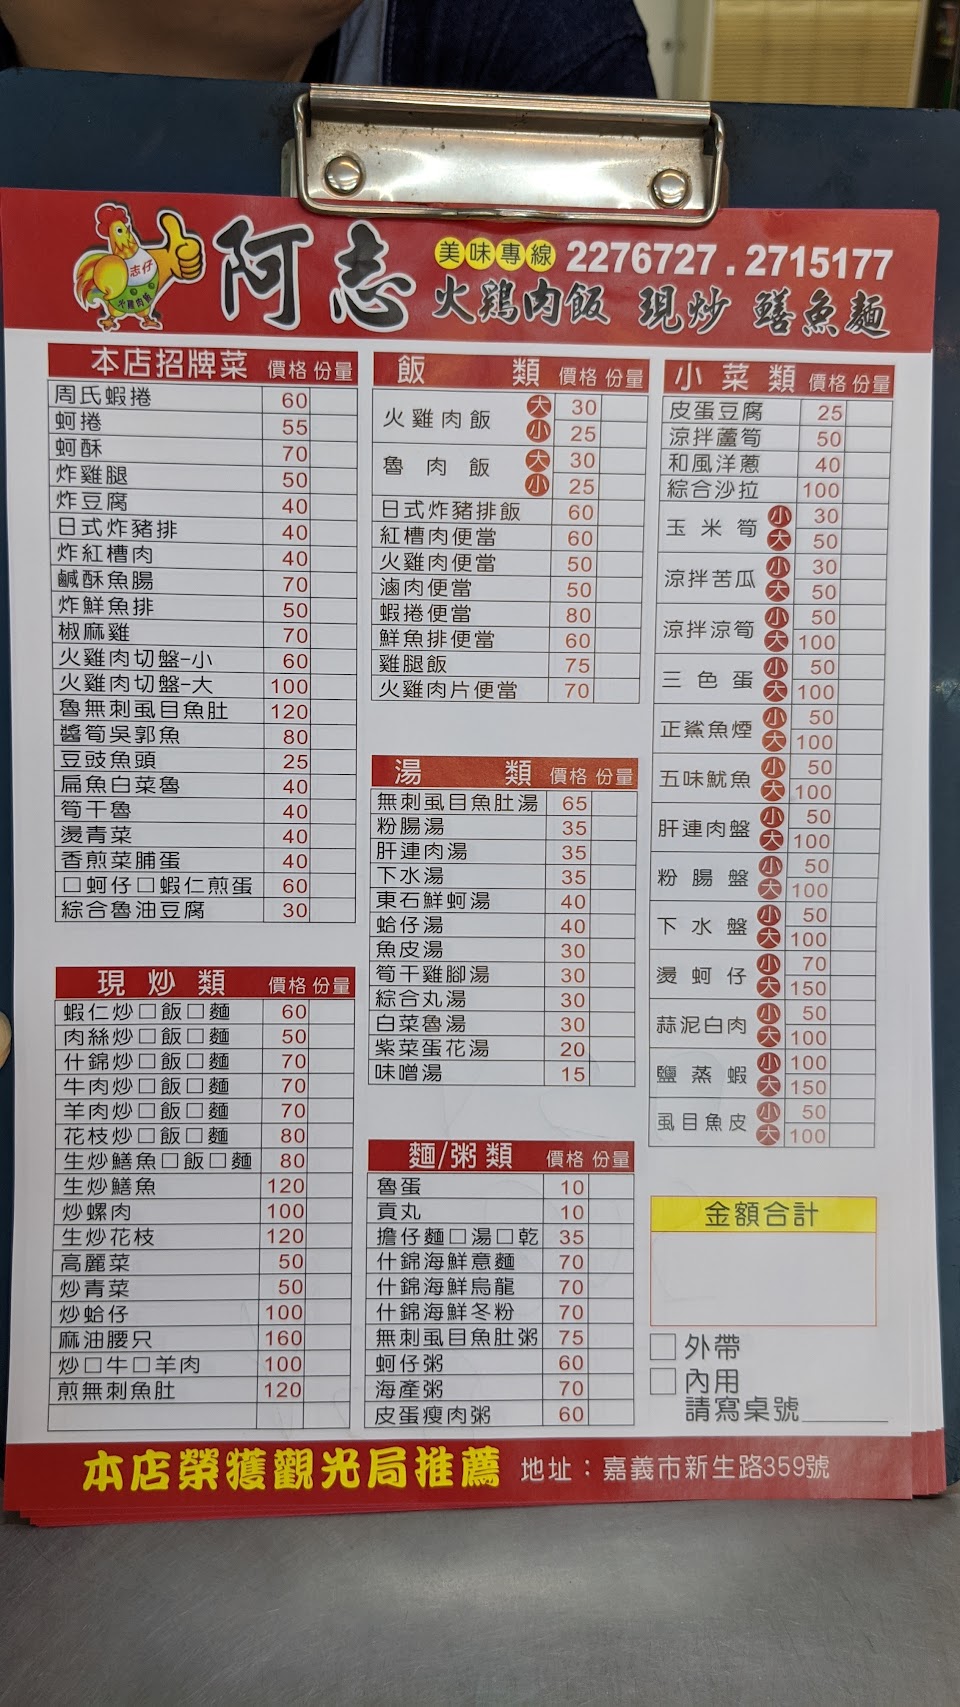 志仔
火雞肉飯
阿志
美味專線 2276727 . 2715177
火鷄肉飯 現炒 鱔魚麵
本店招牌菜 價格 份量
周氏蝦捲 60
蚵捲 55
蚵酥 70
炸雞腿 50
炸豆腐 40
日式炸豬排 40
炸紅槽肉 40
鹹酥魚腸 70
炸鮮魚排 50
椒麻雞 70
火雞肉切盤-小 60
火雞肉切盤-大 100
魯無刺虱目魚肚 120
醬筍吳郭魚 80
豆豉魚頭 25
扁魚白菜魯 40
筍干魯 40
燙青菜 40
香煎菜脯蛋 40
□蚵仔□蝦仁煎蛋 60
綜合魯油豆腐 30
現炒類 價格 份量
蝦仁炒□飯□麵 60
肉絲炒□飯□麵 50
什錦炒□飯□麵 70
牛肉炒□飯□麵 70
羊肉炒□飯□麵 70
花枝炒□飯□麵 80
生炒鱔魚□飯□麵 80
生炒鱔魚 120
炒螺肉 100
生炒花枝 120
高麗菜 50
炒青菜 50
炒蛤仔 100
麻油腰只 160
炒□牛□羊肉 100
煎無刺魚肚 120
飯類 價格 份量
火雞肉飯 大 30
小 25
魯肉飯 大 30
小 25
日式炸豬排飯 60
紅槽肉便當 60
火雞肉便當 50
滷肉便當 50
蝦捲便當 80
鮮魚排便當 60
雞腿飯 75
火雞肉片便當 70
湯類 價格 份量
無刺虱目魚肚湯 65
粉腸湯 35
肝連肉湯 35
下水湯 35
東石鮮蚵湯 40
蛤仔湯 40
魚皮湯 30
筍干雞腳湯 30
綜合丸湯 30
白菜魯湯 30
紫菜蛋花湯 20
味噌湯 15
麵/粥類 價格 份量
魯蛋 10
貢丸 10
擔仔麵□湯□乾 35
什錦海鮮意麵 70
什錦海鮮烏龍 70
什錦海鮮冬粉 70
無刺虱目魚肚粥 75
蚵仔粥 60
海產粥 70
皮蛋瘦肉粥 60
小菜類 價格 份量
皮蛋豆腐 25
涼拌蘆筍 50
和風洋蔥 40
綜合沙拉 100
玉米筍 小 30
大 50
涼拌苦瓜 小 30
大 50
涼拌涼筍 小 50
大 100
三色蛋 小 50
大 100
正鯊魚煙 小 50
大 100
五味魷魚 小 50
大 100
肝連肉盤 小 50
大 100
粉腸盤 小 50
大 100
下水盤 小 50
大 100
燙蚵仔 小 70
大 150
蒜泥白肉 小 50
大 100
鹽蒸蝦 小 100
大 150
虱目魚皮 小 50
大 100
金額合計
□外帶
□內用
請寫桌號______
本店榮獲觀光局推薦 地址：嘉義市新生路359號